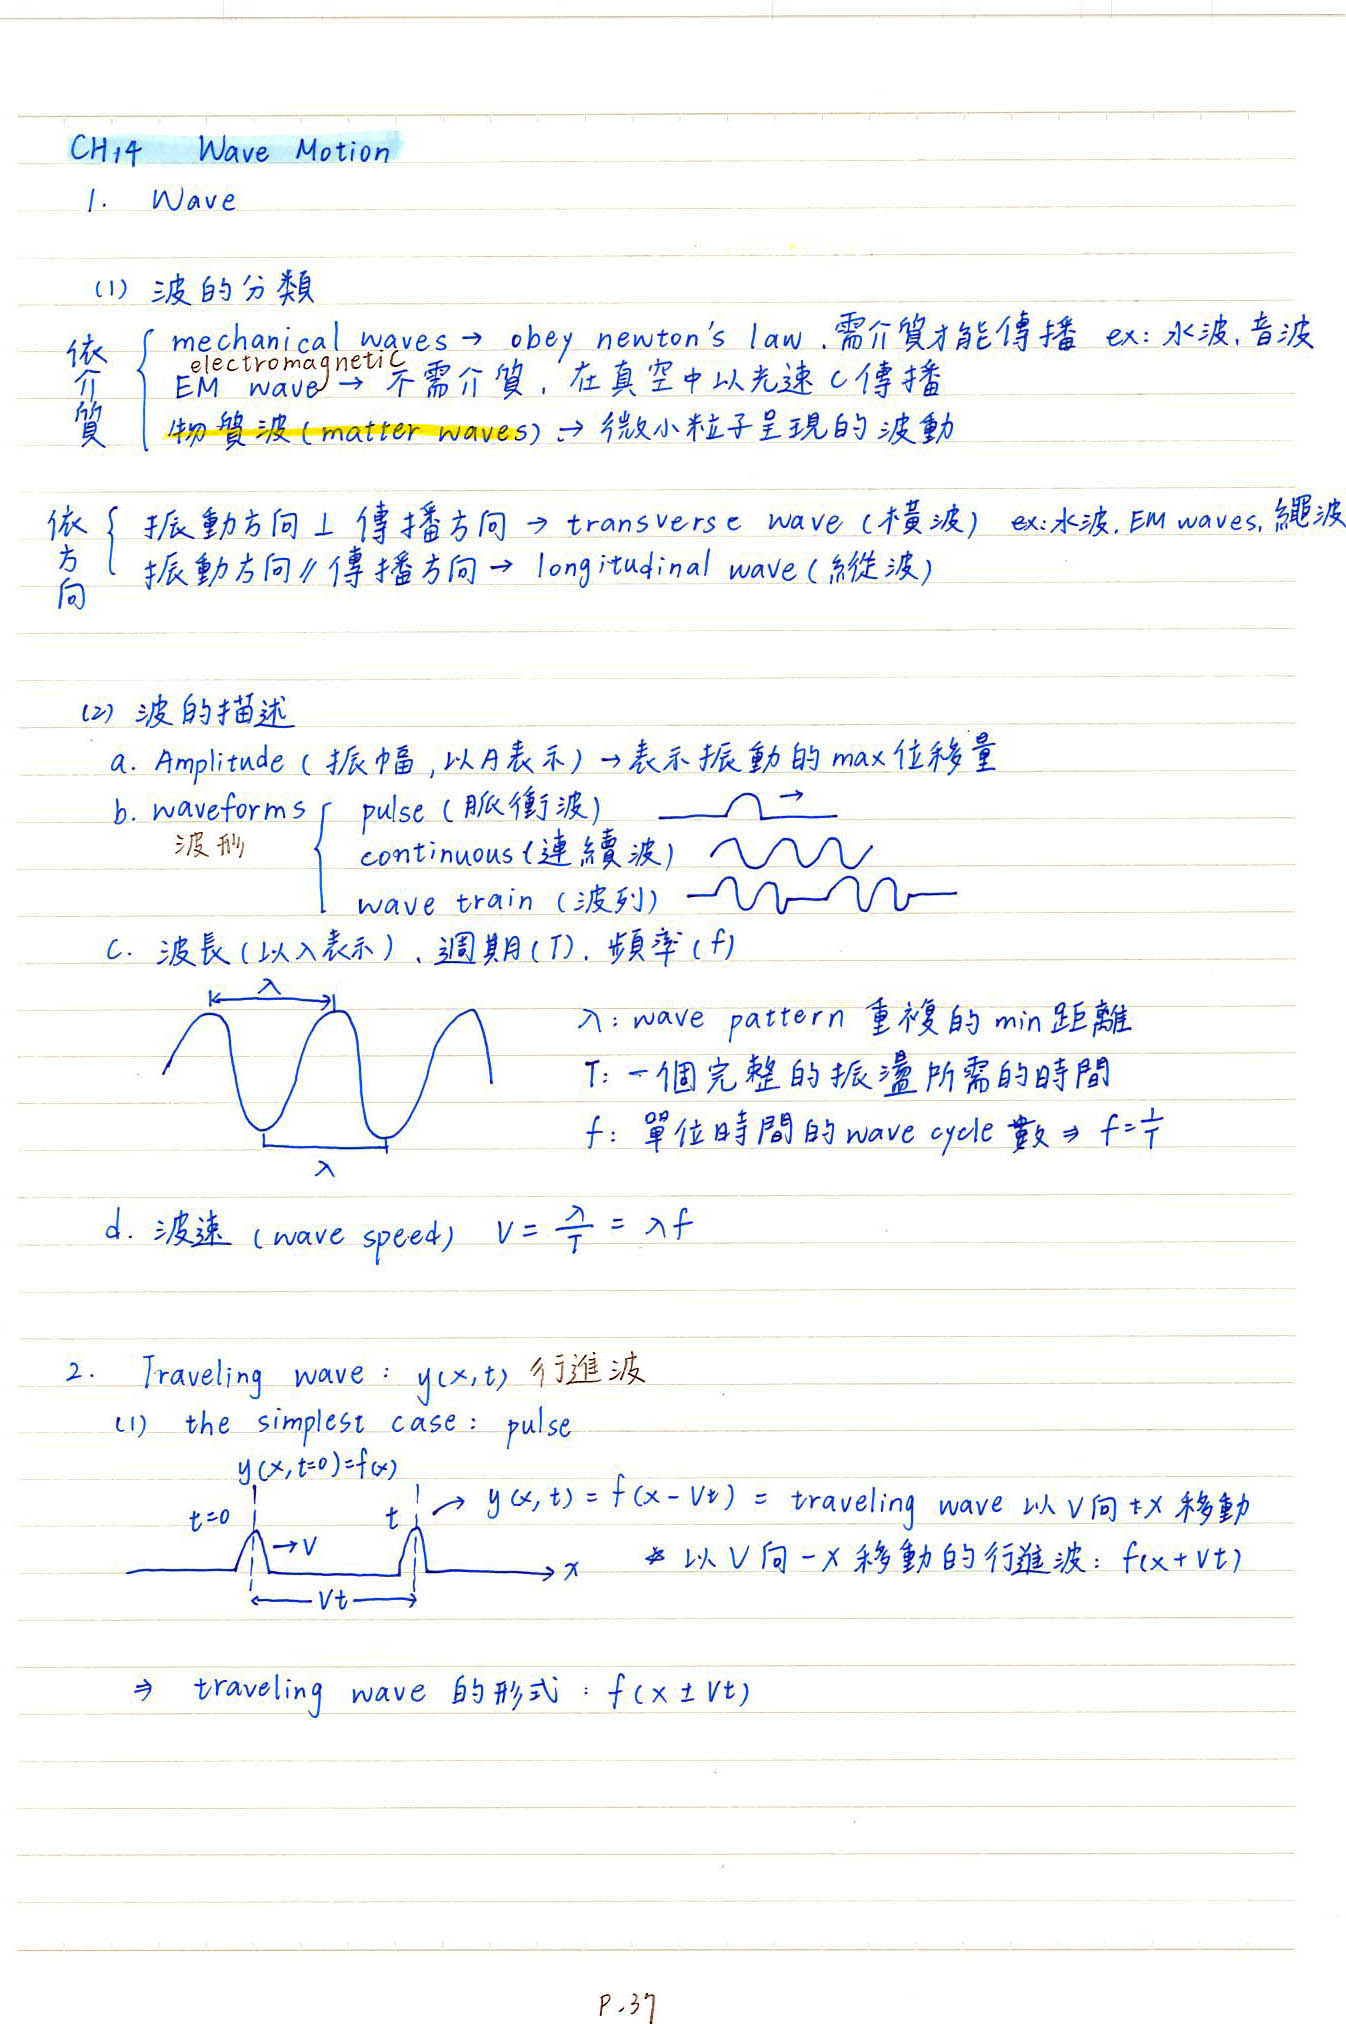 CH14 Wave Motion
1. Wave
(1) 波的分類
依介質
mechanical waves → obey newton's law、需介質才能傳播 ex: 水波、音波
electromagnetic
EM wave → 不需介質，在真空中以光速 c 傳播
物質波(matter waves) → 微小粒子呈現的波動
依方向
振動方向⊥傳播方向 → transverse wave (橫波) ex: 水波, EM waves, 繩波
振動方向∥傳播方向 → longitudinal wave (縱波)
(2) 波的描述
a. Amplitude (振幅,以A表示) → 表示振動的max位移量
b. waveforms
波形
pulse (脈衝波)
continuous (連續波)
wave train (波列)
c. 波長(以λ表示)、週期(T)、頻率(f)
λ
λ
λ: wave pattern 重複的min距離
T: 一個完整的振盪所需的時間
f: 單位時間的wave cycle 數 ⇒ f=1/T
d. 波速 (wave speed) V = λ/T = λf
2. Traveling wave: y(x,t) 行進波
(1) the simplest case: pulse
y(x,t=0)=f(x)
t=0
→V
t
→ y(x,t) = f(x-Vt) = traveling wave 以V向+x移動
* 以V向-x移動的行進波: f(x+Vt)
x
Vt
⇒ traveling wave 的形式: f(x±Vt)
P.37